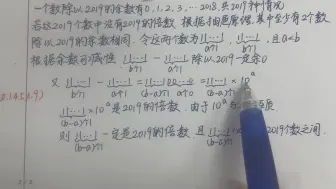 一个数除以2019的余数有0,1,2,3,…2018,共2019种情况
若这2019个数中没有2019的倍数,根据抽屉原理,其中至少有2个数
除以2019的余数相同,令这两个数为 11…1 a个1, 11…1 b个1,且a<b
根据余数可减性 11…1 b个1 - 11…1 a个1 除以2019一定余0
又 11…1 b个1 - 11…1 a个1 = 11…100…0 (b-a)个1 a个0 = 11…1 (b-a)个1 × 10^a
11…1 (b-a)个1 × 10^a 是2019的倍数,由于10^a
则 11…1 (b-a)个1 一定是2019的倍数,且 11…1 (b-a)个1 2019个数之间.